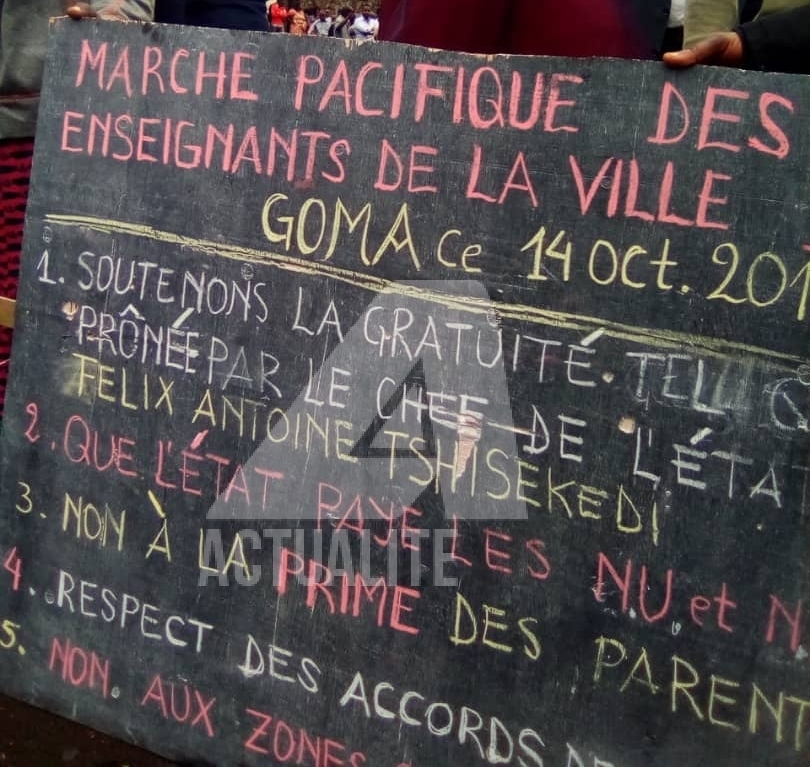 MARCHE PACIFIQUE DES
ENSEIGNANTS DE LA VILLE
GOMA ce 14 Oct. 201
1. SOUTENONS LA GRATUITÉ. TELL Q
PRÔNÉE PAR LE CHEF DE L'ÉTA
FELIX ANTOINE TSHISEKEDI
2. QUE L'ÉTAT PAYE LES NU et N
3. NON À LA PRIME DES PARENT
4. RESPECT DES ACCORDS DE
5. NON. AUX ZONES
ACTUALITE